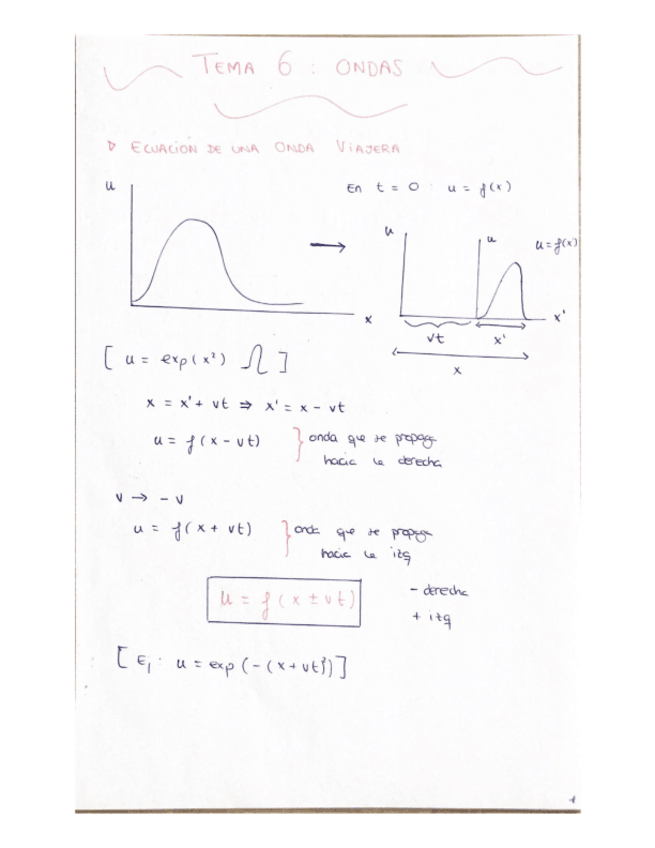 TEMA 6 : ONDAS
▷ ECUACIÓN DE UNA ONDA VIAJERA
En t = 0 : u = f(x)
u
x
u
u
u = f(x')
x'
vt
x'
x
[ u = exp(x²) ]
x = x' + vt ⇒ x' = x - vt
u = f(x - vt) } onda que se propaga
hacia la derecha
v → - v
u = f(x + vt) } onda que se propaga
hacia la izq
u = f(x ± vt)
- derecha
+ izq
[ Ej: u = exp(-(x+vt)²)]
1